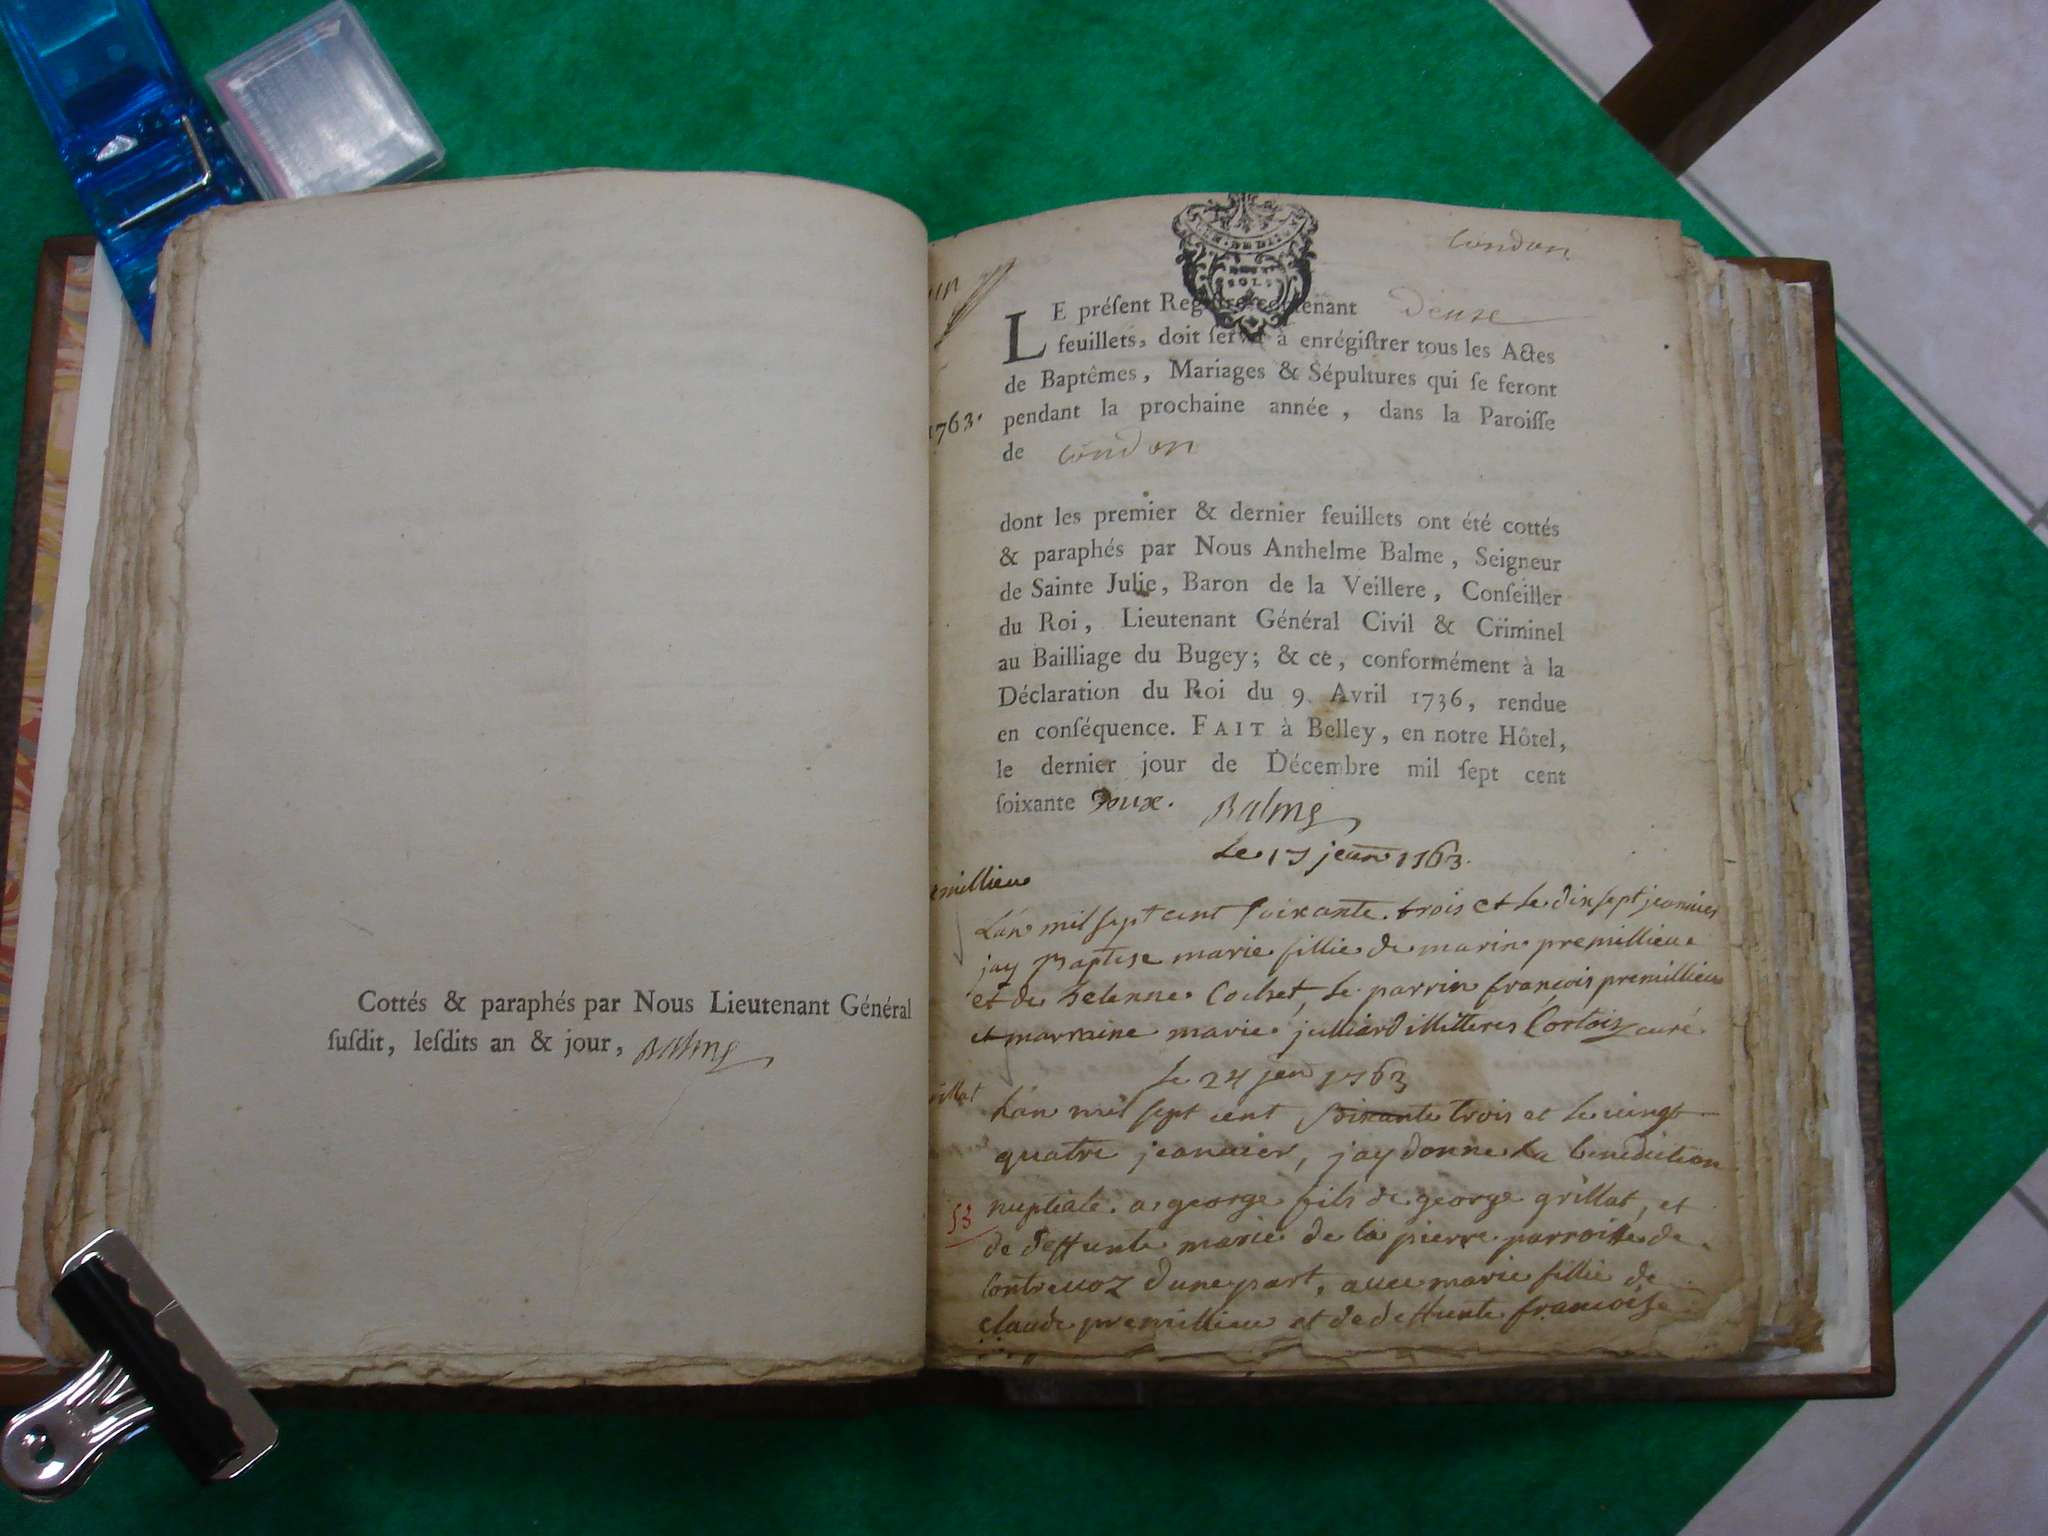 Cottés & paraphés par Nous Lieutenant Général
suſdit, leſdits an & jour, Balme
Condon
1763.
LE préſent Regiſtre contenant Deuxe
feuillets, doit ſervir à enrégiſtrer tous les Actes
de Baptêmes, Mariages & Sépultures qui ſe feront
pendant la prochaine année, dans la Paroiſſe
de Condon
dont les premier & dernier feuillets ont été cottés
& paraphés par Nous Anthelme Balme, Seigneur
de Sainte Julie, Baron de la Veillere, Conſeiller
du Roi, Lieutenant Général Civil & Criminel
au Bailliage du Bugey; & ce, conformément à la
Déclaration du Roi du 9 Avril 1736, rendue
en conſéquence. FAIT à Belley, en notre Hôtel,
le dernier jour de Décembre mil ſept cent
ſoixante Deux. Balme
Le 17 jeanr 1763.
emillieu
Lan mil sept cent soixante trois et le dix sept jeanvier
jay Baptese marie fillie de marin premillieu
et de helenne Cochet, le parrin françois premillieu
et marraine marie julliard illitteres Cortois curé.
le 24 jeanr 1763
illat
Lan mil sept cent soixante trois et le vingt
quatre jeanvier, jay donne la benediction
53
nuptiale a george fils de george grillat, et
de deffunte marie de la pierre parroisse de
Contrevoz dune part, avec marie fillie de
claude premillieu et de deffunte francoise